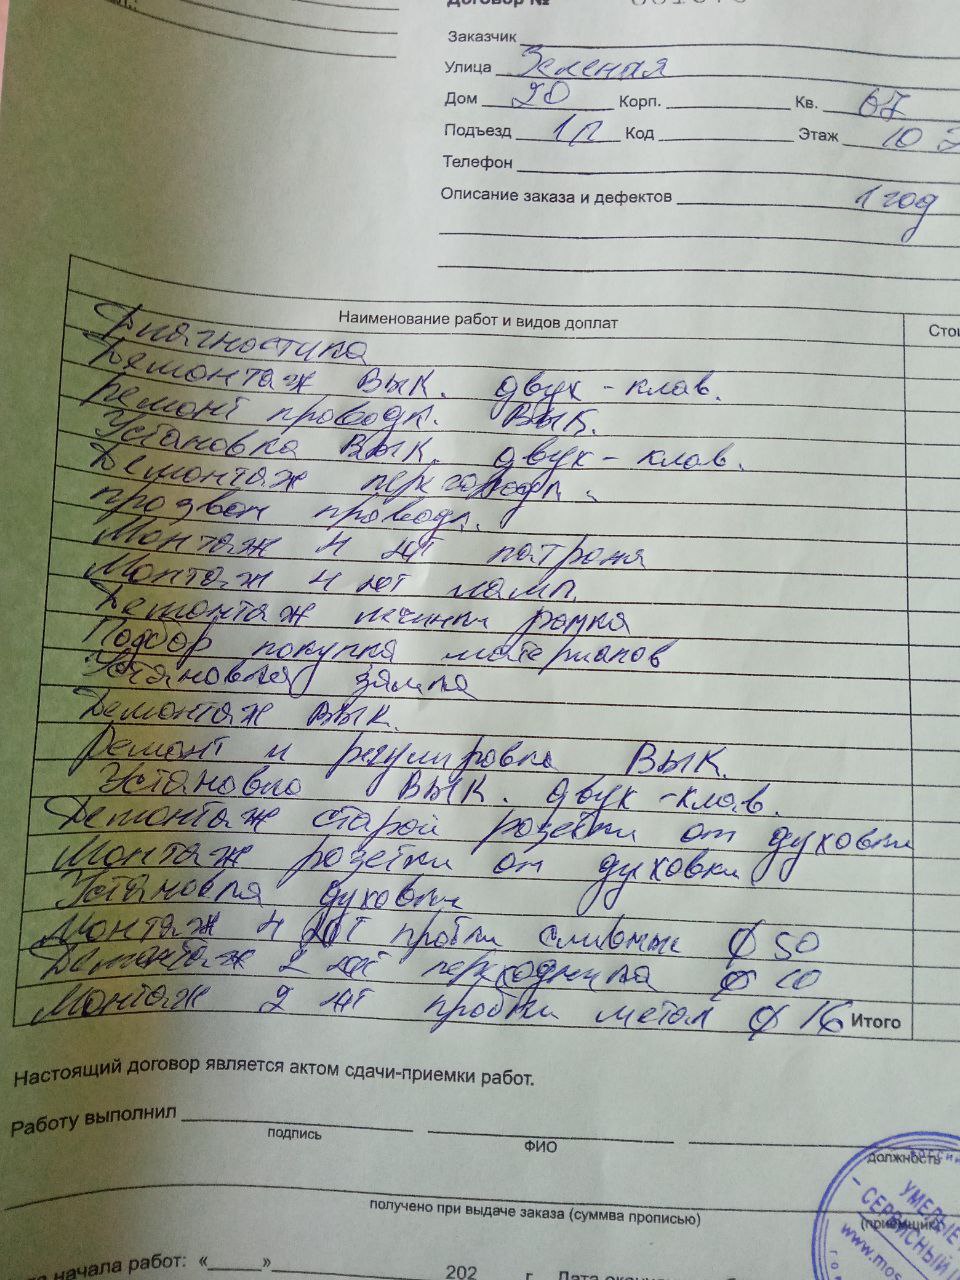 Договор №
Заказчик
Улица Зеленая
Дом 20 Корп. Кв. 67
Подъезд 1п Код Этаж 10 э
Телефон
Описание заказа и дефектов 1 год
Наименование работ и видов доплат Стои
Диагностика
Демонтаж вык. двух-клав.
Ремонт проводк. вык.
Установка вык. двух-клав.
Демонтаж перегородк.
прозвон проводк.
Монтаж 4 шт патрона
Монтаж 4 шт ламп.
Демонтаж рамка
Подбор покупка материалов
Установка замка
Демонтаж вык.
Ремонт и регулировка вык.
Установка вык. двух-клав.
Демонтаж старой розетки от духовки
Монтаж розетки от духовки
Установка духовки
Монтаж 4 шт пробки сливные ф 50
Демонтаж 2 шт переходника ф 10
Монтаж 2 шт пробки метал ф 16 Итого
Настоящий договор является актом сдачи-приемки работ.
Работу выполнил
подпись ФИО должность
получено при выдаче заказа (суммва прописью) (приемщик)
УМЕЛЫЕ
СЕРВИСНЫЙ
www.mos
начала работ: « » 202 г. Дата